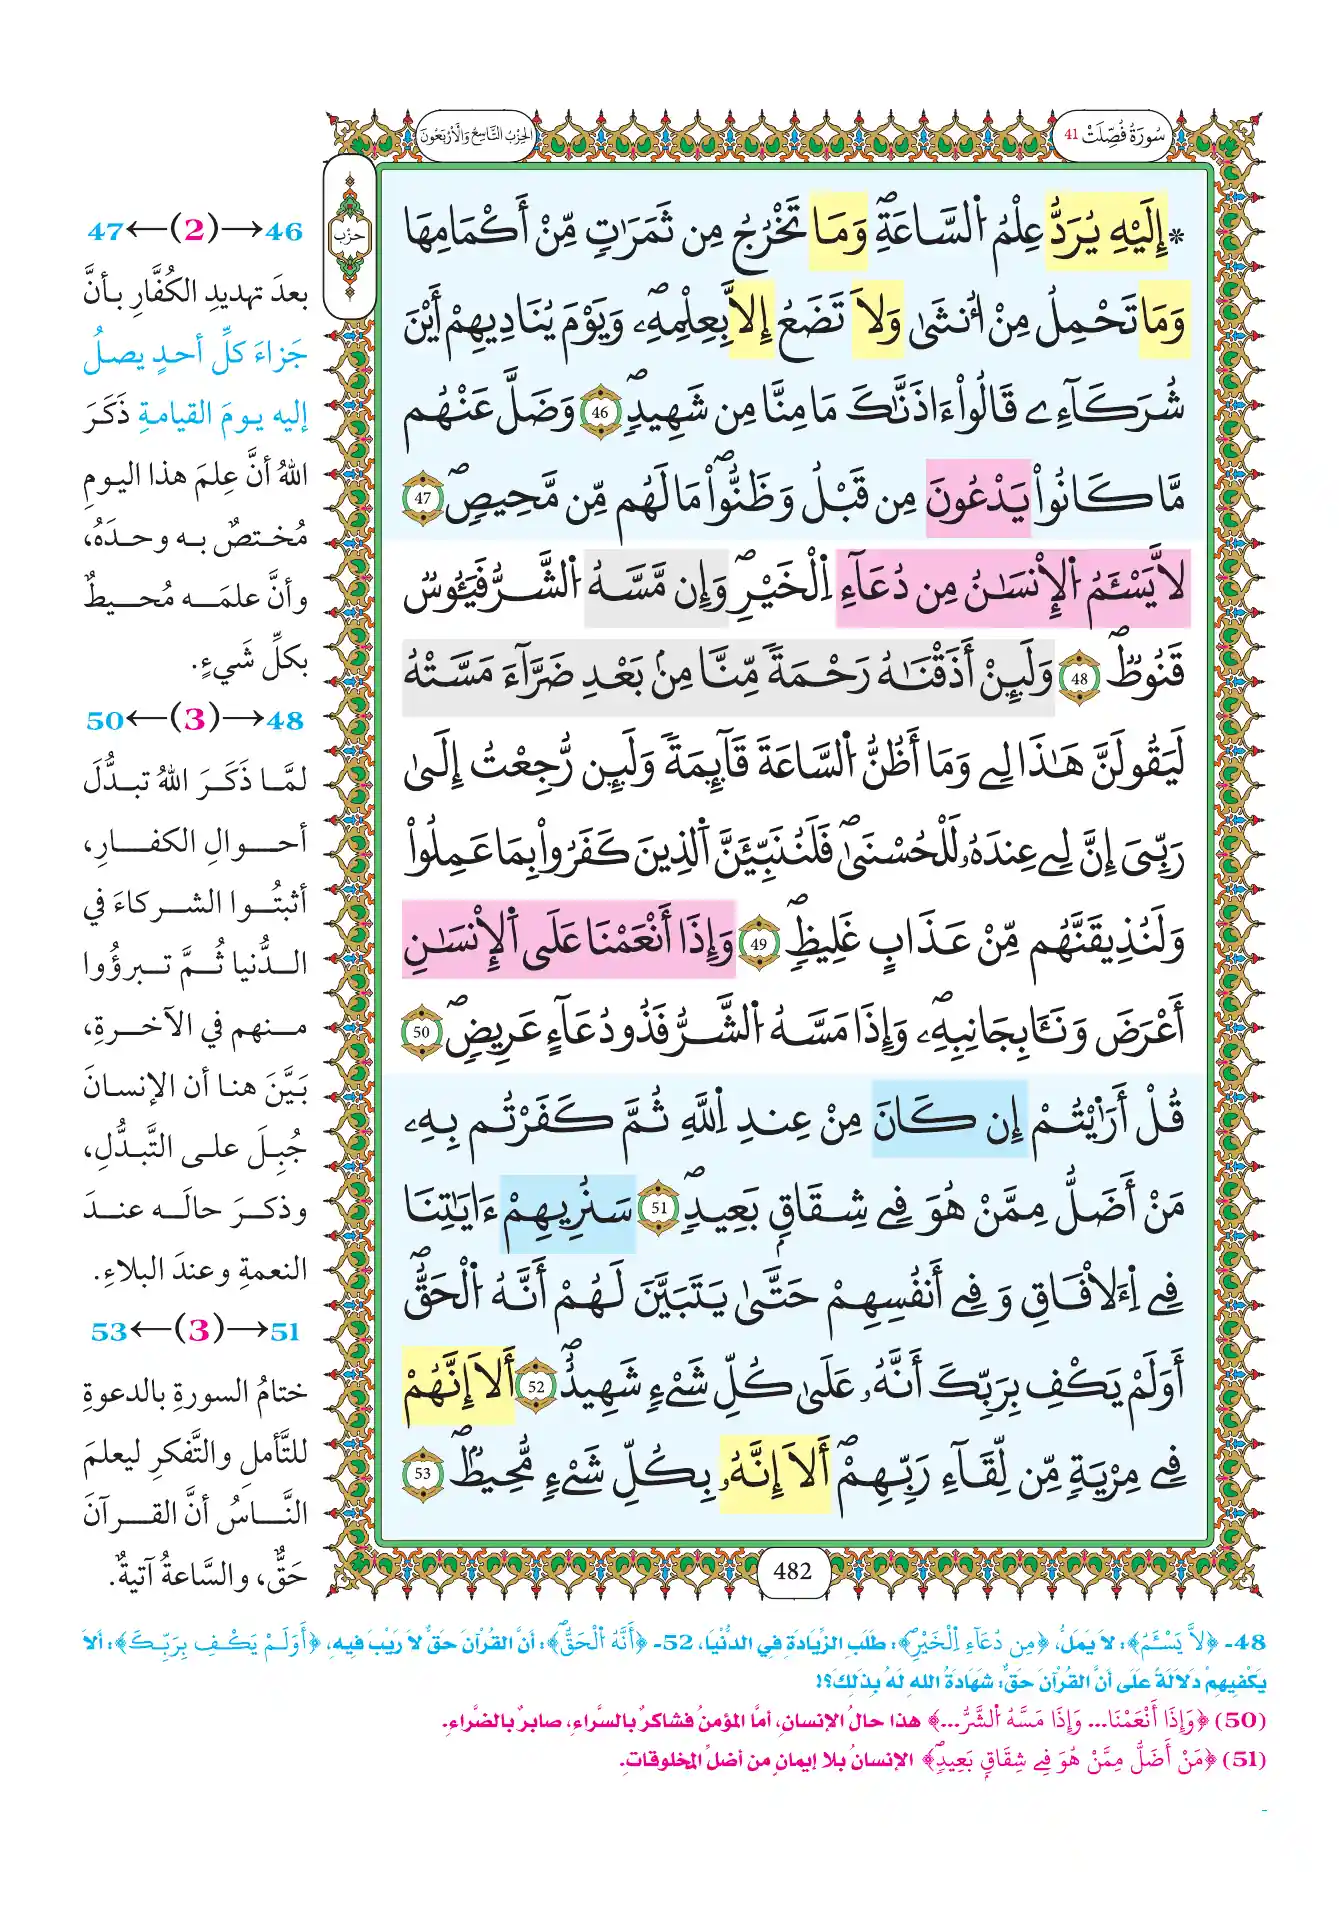 سُورَةُ فُصِّلَتْ 41
الحِزْبُ التَّاسِعُ وَالْأَرْبَعُونَ
حزب
* إِلَيْهِ يُرَدُّ عِلْمُ اُلسَّاعَةِۖ وَمَا تَخْرُجُ مِن ثَمَرَٰتٖ مِّنْ أَكْمَامِهَا
وَمَا تَحْمِلُ مِنْ أُنثَىٰ وَلَا تَضَعُ إِلَّا بِعِلْمِهِۦۖ وَيَوْمَ يُنَادِيهِمْ أَيْنَ
شُرَكَآءِے قَالُوٓاْ ءَاذَنَّٰكَ مَا مِنَّا مِن شَهِيدٖۖ 46 وَضَلَّ عَنْهُم
مَّا كَانُواْ يَدْعُونَ مِن قَبْلُ وَظَنُّواْۖ مَا لَهُم مِّن مَّحِيصٖۖ 47
لَّا يَسْـَٔمُ اُلْإِنسَٰنُ مِن دُعَآءِ اِلْخَيْرِۖ وَإِن مَّسَّهُ اُلشَّرُّ فَيَـُٔوسٞ
قَنُوطٞۖ 48 وَلَئِنْ أَذَقْنَٰهُ رَحْمَةٗ مِّنَّا مِنۢ بَعْدِ ضَرَّآءَ مَسَّتْهُ
لَيَقُولَنَّ هَٰذَا لِے وَمَا أَظُنُّ اُلسَّاعَةَ قَآئِمَةٗ وَلَئِن رُّجِعْتُ إِلَىٰ
رَبِّيَ إِنَّ لِے عِندَهُۥ لَلْحُسْنَىٰۖ فَلَنُنَبِّئَنَّ اَلذِينَ كَفَرُواْ بِمَا عَمِلُواْ
وَلَنُذِيقَنَّهُم مِّنْ عَذَابٍ غَلِيظٖۖ 49 وَإِذَا أَنْعَمْنَا عَلَى اَلْإِنسَٰنِ
أَعْرَضَ وَنَـَٔا بِجَانِبِهِۦۖ وَإِذَا مَسَّهُ اُلشَّرُّ فَذُو دُعَآءٍ عَرِيضٖۖ 50
قُلْ أَرَٰيْتُمْ إِن كَانَ مِنْ عِندِ اِللَّهِ ثُمَّ كَفَرْتُم بِهِۦ
مَنْ أَضَلُّ مِمَّنْ هُوَ فِے شِقَاقِۢ بَعِيدٖۖ 51 سَنُرِيهِمْ ءَايَٰتِنَا
فِے اِلْأٓفَاقِ وَفِے أَنفُسِهِمْ حَتَّىٰ يَتَبَيَّنَ لَهُمْ أَنَّهُ اُلْحَقُّۖ
أَوَلَمْ يَكْفِ بِرَبِّكَ أَنَّهُۥ عَلَىٰ كُلِّ شَےْءٖ شَهِيدٌۖ 52 أَلَا إِنَّهُمْ
فِے مِرْيَةٖ مِّن لِّقَآءِ رَبِّهِمْۖ أَلَا إِنَّهُۥ بِكُلِّ شَےْءٖ مُّحِيطٞۖ 53
482
47←(2)→46
بعدَ تهديدِ الكُفَّارِ بأنَّ
جَزاءَ كلِّ أحدٍ يصلُ
إليه يومَ القيامةِ ذَكَرَ
اللهُ أنَّ عِلمَ هذا اليومِ
مُختصٌ به وحدَهُ،
وأنَّ علمَه مُحيطٌ
بكلِّ شَيءٍ.
50←(3)→48
لمَّا ذَكَرَ اللهُ تبدُّلَ
أحوالِ الكفارِ،
أثبتُوا الشركاءَ في
الدُّنيا ثُمَّ تبرؤُوا
منهم في الآخرةِ،
بَيَّنَ هنا أن الإنسانَ
جُبِلَ على التَّبدُّلِ،
وذكرَ حالَه عندَ
النعمةِ وعندَ البلاءِ.
53←(3)→51
ختامُ السورةِ بالدعوةِ
للتَّأملِ والتَّفكرِ ليعلمَ
النَّاسُ أنَّ القرآنَ
حَقٌّ، والسَّاعةُ آتيةٌ.
48- ﴿لَّا يَسْـَٔمُ﴾: لَا يَمَلُّ، ﴿مِن دُعَآءِ اِلْخَيْرِۖ﴾: طَلَبِ الزِّيَادَةِ فِي الدُّنْيَا، 52- ﴿أَنَّهُ اُلْحَقُّۖ﴾: أَنَّ القُرْآنَ حَقٌّ لَا رَيْبَ فِيهِ، ﴿أَوَلَمْ يَكْفِ بِرَبِّكَ﴾: أَلَا
يَكْفِيهِمْ دَلَالَةً عَلَى أَنَّ القُرْآنَ حَقٌّ: شَهَادَةُ اللهِ لَهُ بِذَلِكَ؟!
(50) ﴿وَإِذَا أَنْعَمْنَا... وَإِذَا مَسَّهُ اُلشَّرُّ...﴾ هذا حالُ الإنسانِ، أمَّا المؤمنُ فشاكرٌ بالسَّراءِ، صابرٌ بالضَّراءِ.
(51) ﴿مَنْ أَضَلُّ مِمَّنْ هُوَ فِے شِقَاقِۢ بَعِيدٖۖ﴾ الإنسانُ بلا إيمانٍ من أضلِّ المخلوقاتِ.